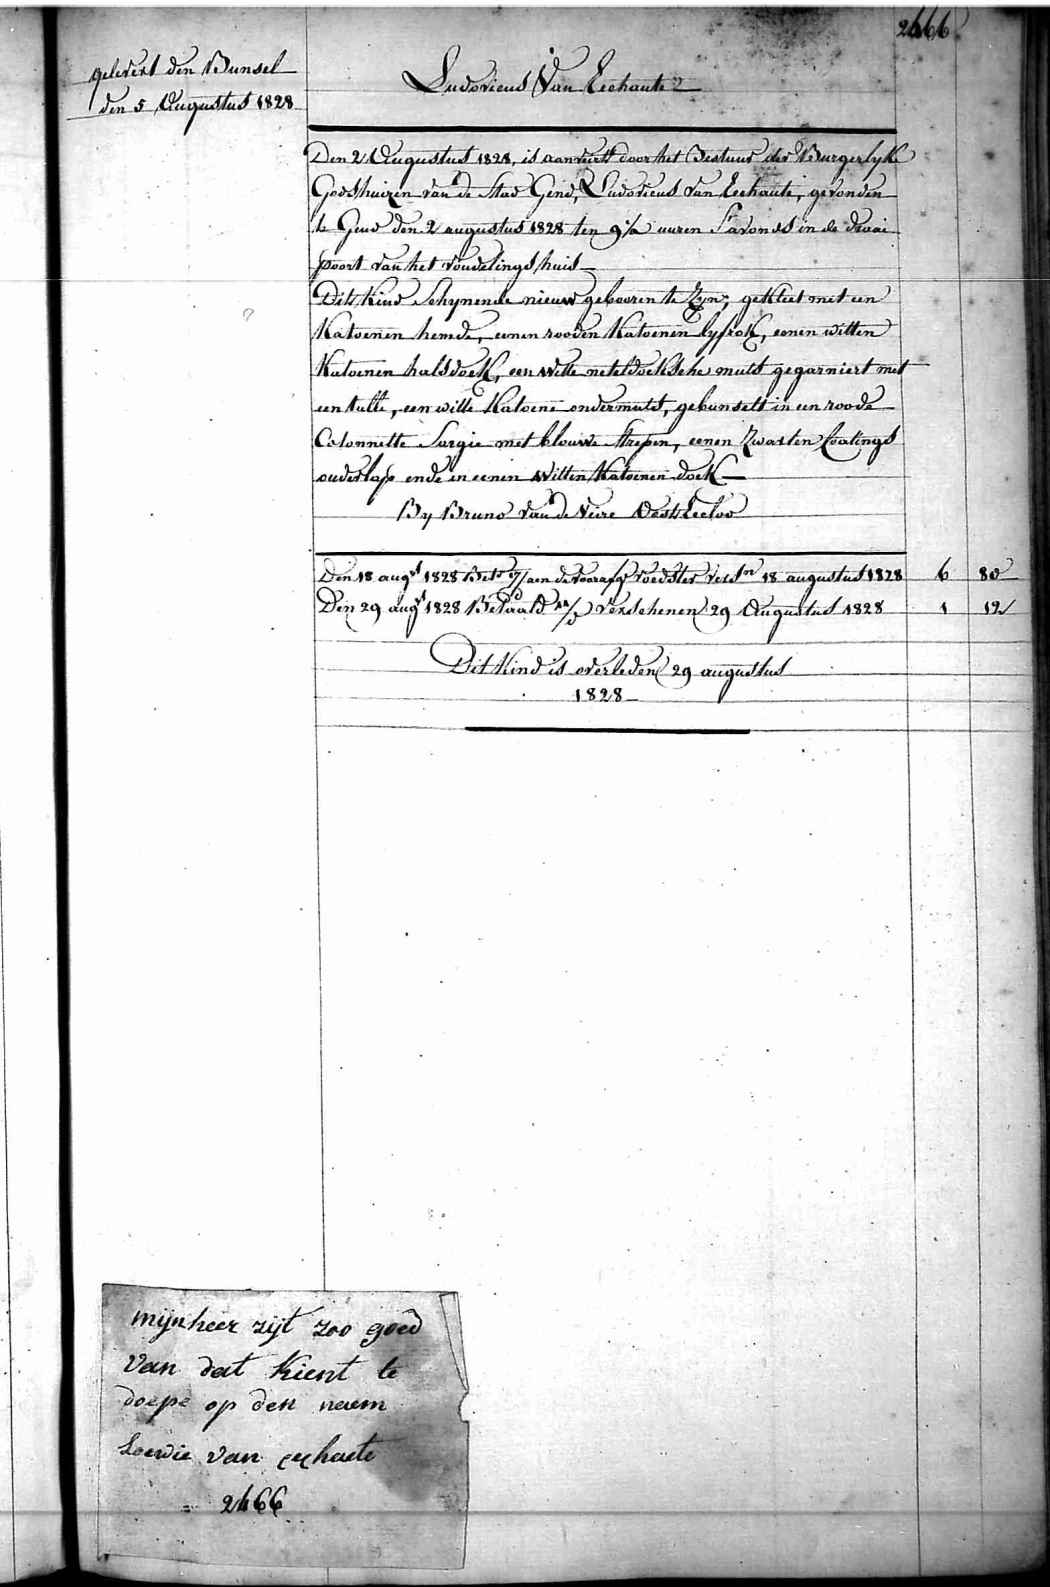 2466
gelevert den Bunsel
den 5 Augustus 1828
Ludovicus Van Eechaute
Den 2 Augustus 1828, is aanveirt door het Bestuur der Burgerlyke
Godshuizen van de Stad Gend, Ludovicus Van Eechaute, gevonden
te Gend den 2 augustus 1828 ten 9½ uuren S'avonds in de draai
poort van het vondelingshuis
Dits Kind Schynende nieuw gebooren te Zyn; gekleet met een
Katoenen hemde, eenen rooden Katoenen lyfrok, eenen witten
Katoenen halsdoek, een witte neteldoeksche muts gegarniert met
een tulle, een witte Katoene ondermuts, gebunselt in een roode
Catonnette Sargie met blouwe Strepen, eenen Zwarten Coatings
ouderlap ende in eenen witten Katoenen doek
By Bruno Van de Veire Oost Eecloo
Den 18 augt 1828 Bet aen de voorafg voedster versn 18 augustus 1828 6 80
Den 29 augt 1828 Betaald verschenen 29 Augustus 1828 1 12
Dit Kind is overleden 29 augustus
1828
mijnheer zijt zoo goed
van dat kient te
doepe op den naem
Loewie van eechaete
2466